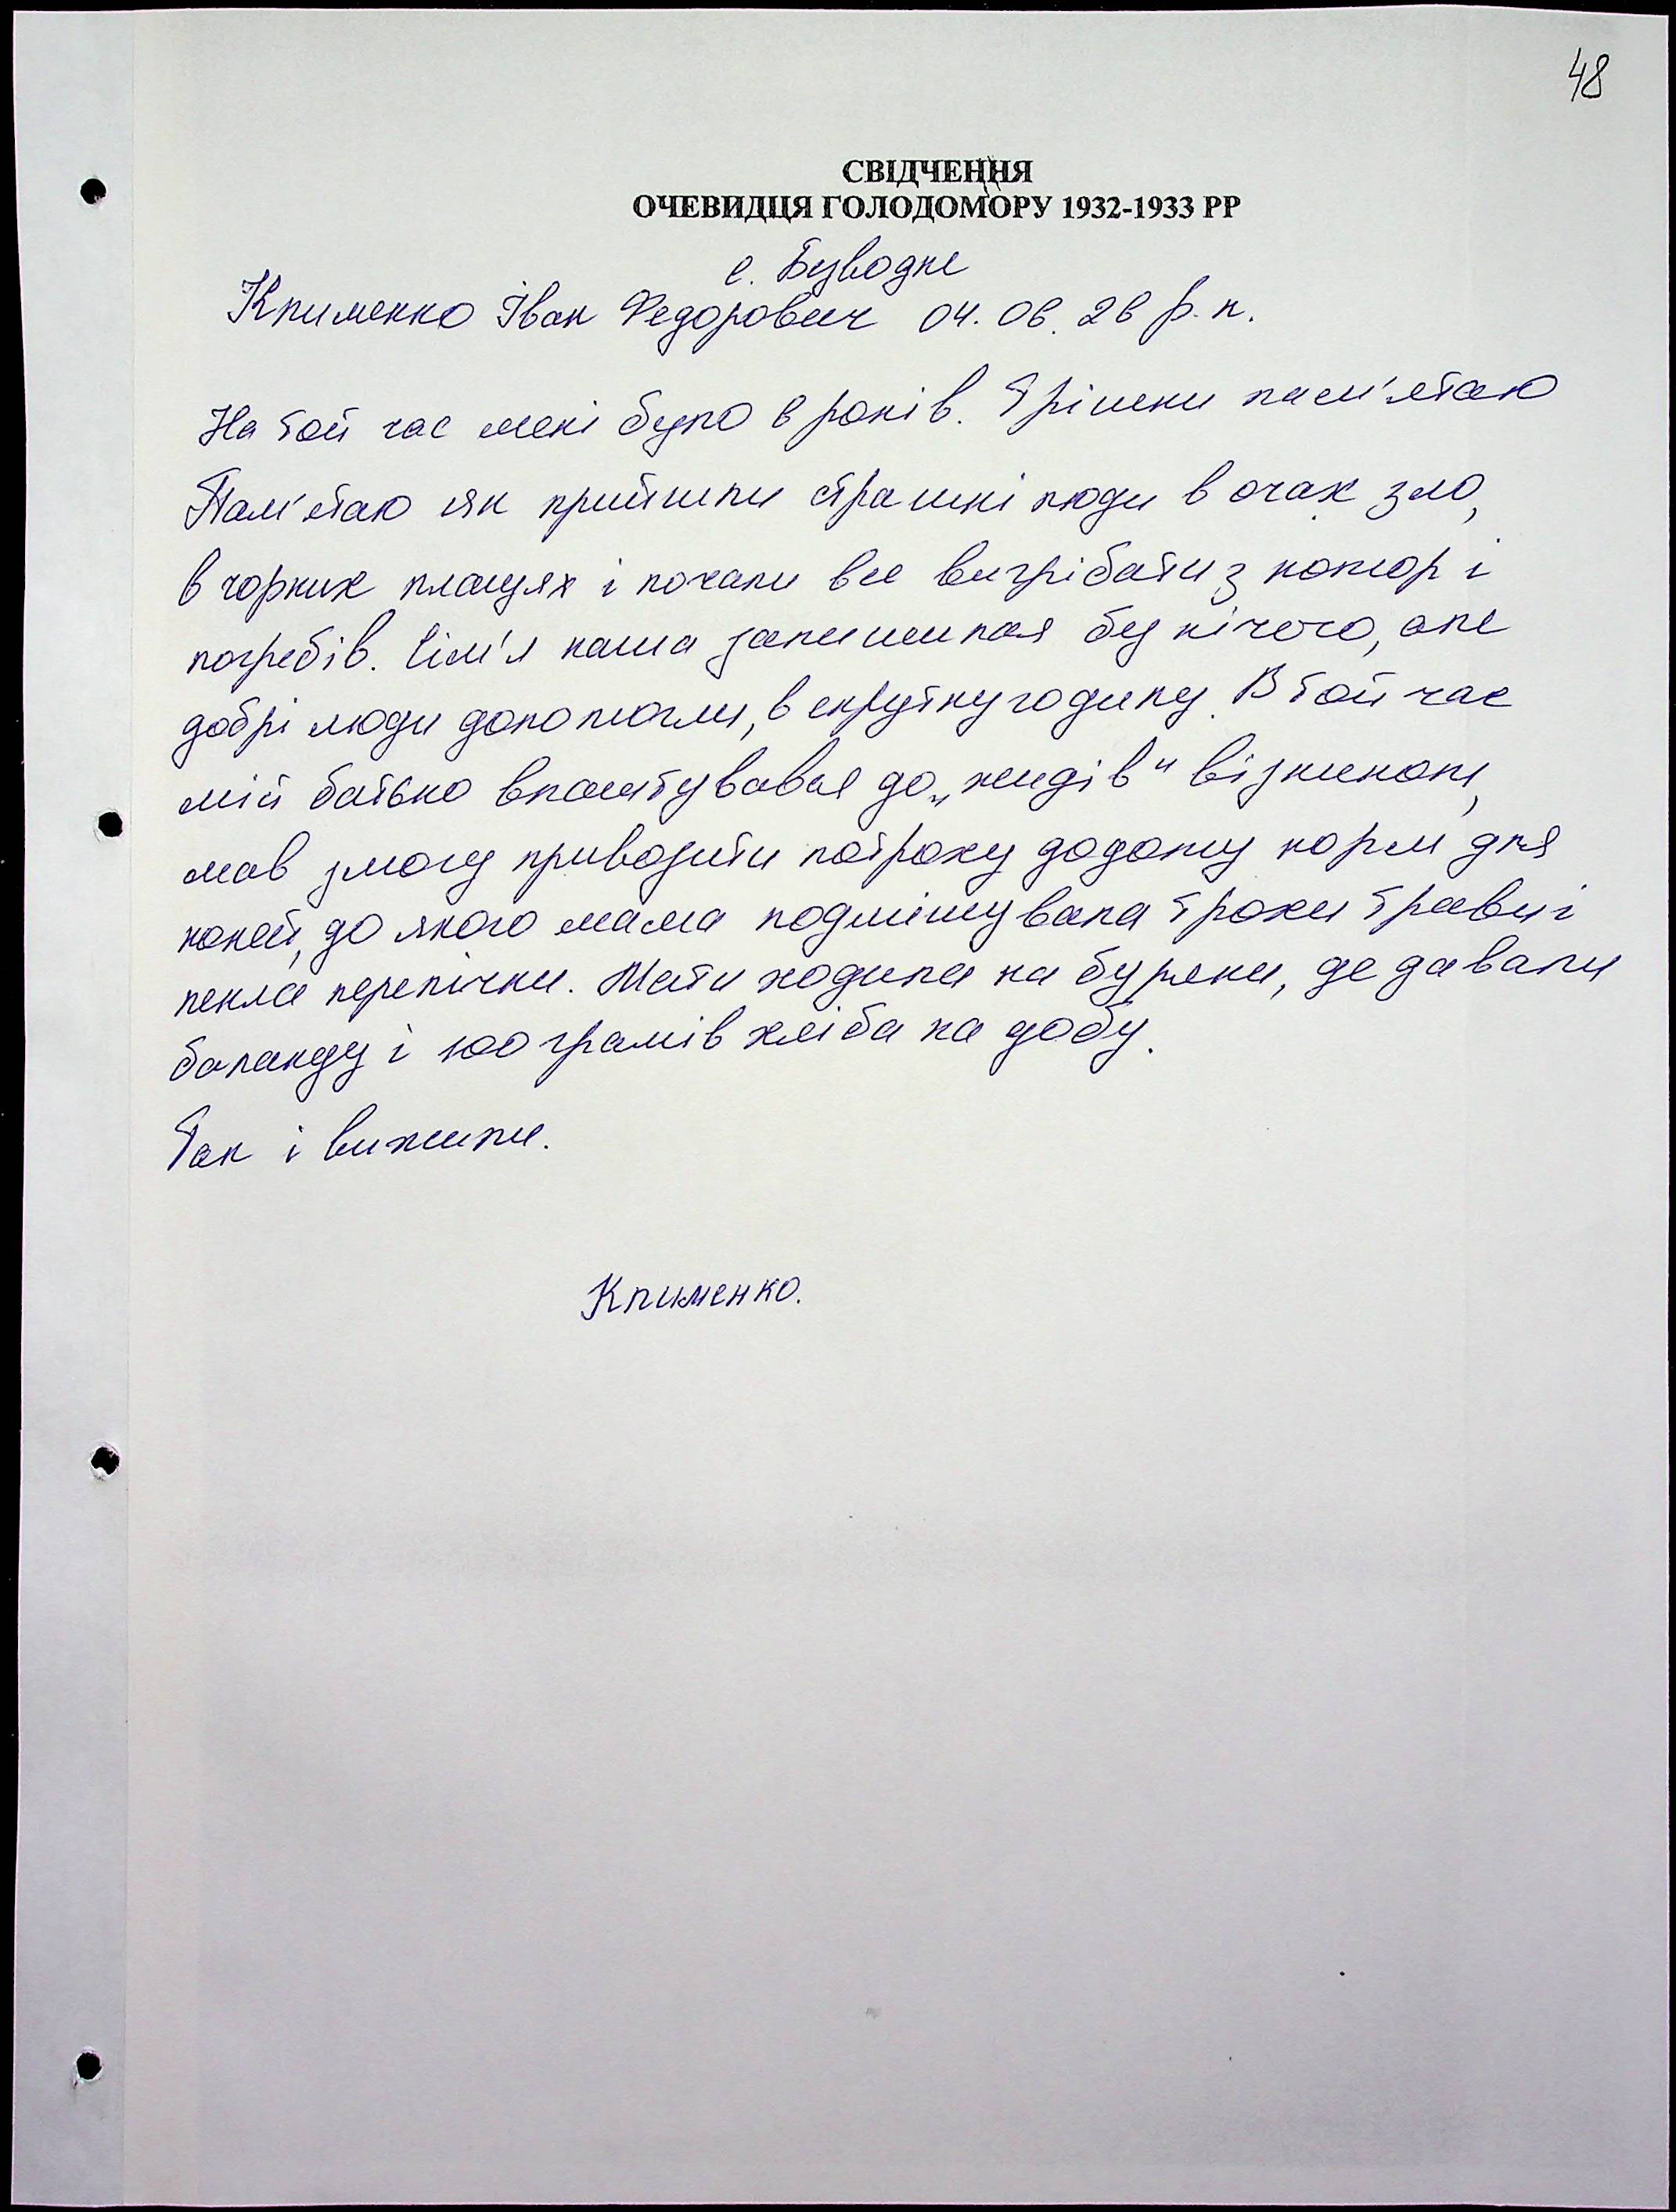 48
СВІДЧЕННЯ
ОЧЕВИДЦЯ ГОЛОДОМОРУ 1932-1933 РР
с. Безводне
Клименко Іван Федорович 04. 06. 26 р. н.
На той час мені було 6 років. Трішки пам'ятаю
Пам'ятаю як прийшли страшні люди в очах зло,
в чорних плащях і почали все вигрібати з комор і
погребів. Сім'я наша залишилася без нічого, але
добрі люди допомогли, в скрутну годину. В той час
мій батько влаштувався до „жидів" візником,
мав змогу привозити потроху додому корм для
коней, до якого мама подмішувала трохи трави і
пекла перепічки. Мати ходила на буряки, де давали
баланду і 100 грамів хліба на добу.
Так і вижили.
Клименко.